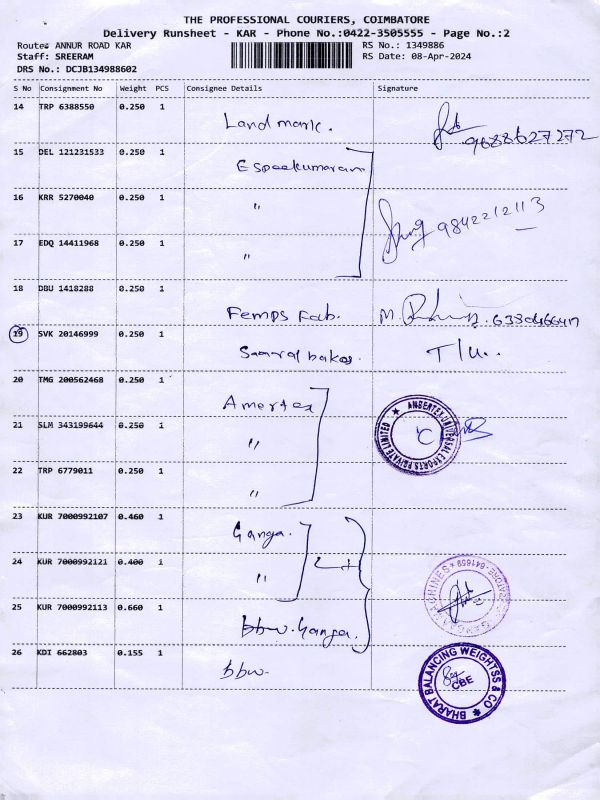 THE PROFESSIONAL COURIERS, COIMBATORE
Delivery Runsheet - KAR - Phone No.:0422-3505555 - Page No.:2
Route: ANNUR ROAD KAR
RS No.: 1349886
Staff: SREERAM
RS Date: 08-Apr-2024
DRS No.: DCJB134988602
S No Consignment No Weight PCS Consignee Details Signature
14 TRP 6388550 0.250 1 Land mark. 9688627272
15 DEL 121231533 0.250 1
16 KRR 5270040 0.250 1 " 9842212113
17 EDQ 14411968 0.250 1 "
18 DBU 1418288 0.250 1 Femps Fab. M.
19 SVK 20146999 0.250 1
20 TMG 200562468 0.250 1
21 SLM 343199644 0.250 1 "
22 TRP 6779011 0.250 1 "
23 KUR 7000992107 0.460 1 Ganga.
24 KUR 7000992121 0.400 1 "
25 KUR 7000992113 0.660 1 Ganga.
26 KDI 662803 0.155 1 bbw
BHARAT BALANCING WEIGHTSS & CO
CBE